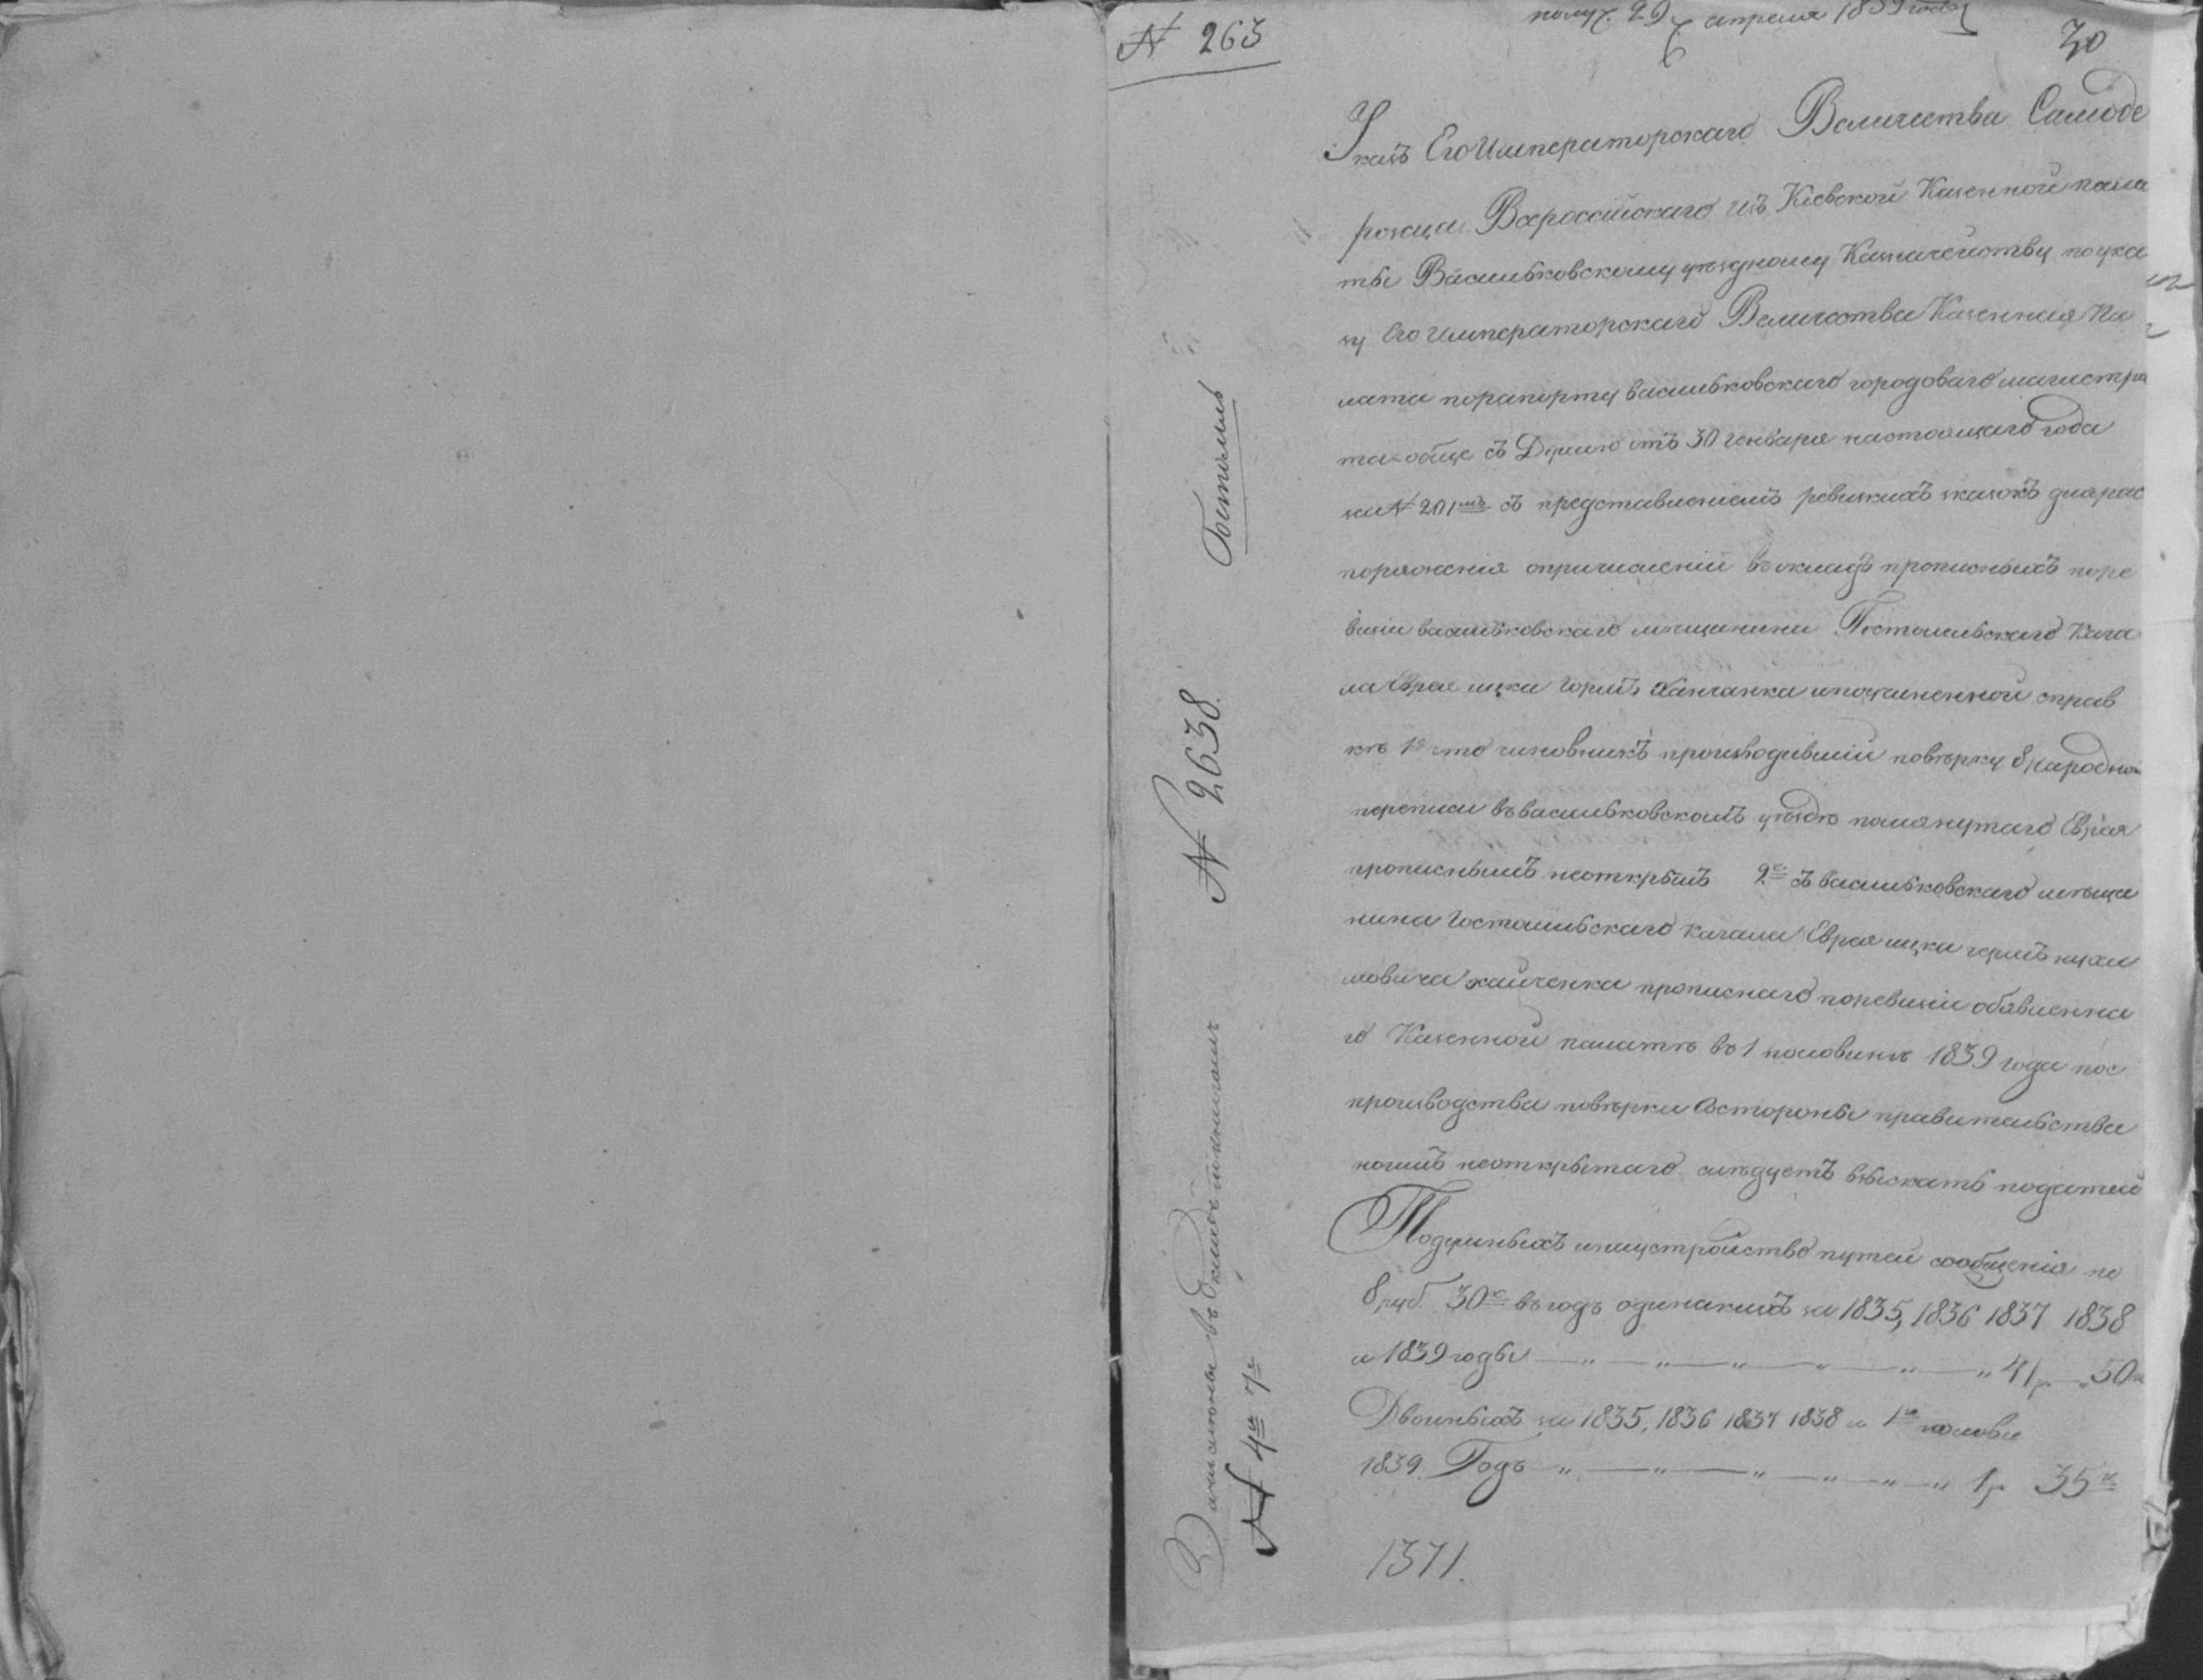 N 263
получ. 29 апреля 1839 года
30
Указъ Его Императорскаго Величества Самоде
ржца Всероссійскаго изъ Кіевской Казенной пала
ты Васильковскому уѣздному Казначейству по ука
зу Его Императорскаго Величества Казенная Па
лата порапорту васильковскаго городоваго магистра
та обще съ Думою отъ 30 генваря настоящаго года
за N 201мъ съ представленіемъ ревизкихъ сказокъ для рас
поряженія опричисленіи въ окладъ прописныхъ поре
визіи васильковскаго мѣщанина Гостомльскаго Кага
ла Еврея ицка и поучиненной справ
кѣ 1е что чиновникъ производившій повѣрку 8 народной
переписи въ васильковскомъ уѣздѣ помянутаго Еврея
прописнымъ неоткрылъ 2е съ васильковскаго мѣща
нина Гостомльскаго кагала Еврея ицка
мовича хайченка прописнаго поревизіи обявленна
го Казенной палатѣ въ 1 половинѣ 1839 года пос
производства повѣрки состороны правительства
ноимъ неоткрытаго слѣдуетъ взыскать податей
Подушныхъ инаустройство путей сообщенія по
8 руб 30к въ годъ одинакихъ за 1835, 1836 1837 1838
и 1839 годы — „ — „ — „ — „ — „ — „ 41р. „ 50к
Двоиныхъ за 1835, 1836 1837 1838 и 1ю полови
1839. Годъ — „ — „ — „ — „ — „ — „ 1р 35к
1371.
N 2638.
N 4й 7й